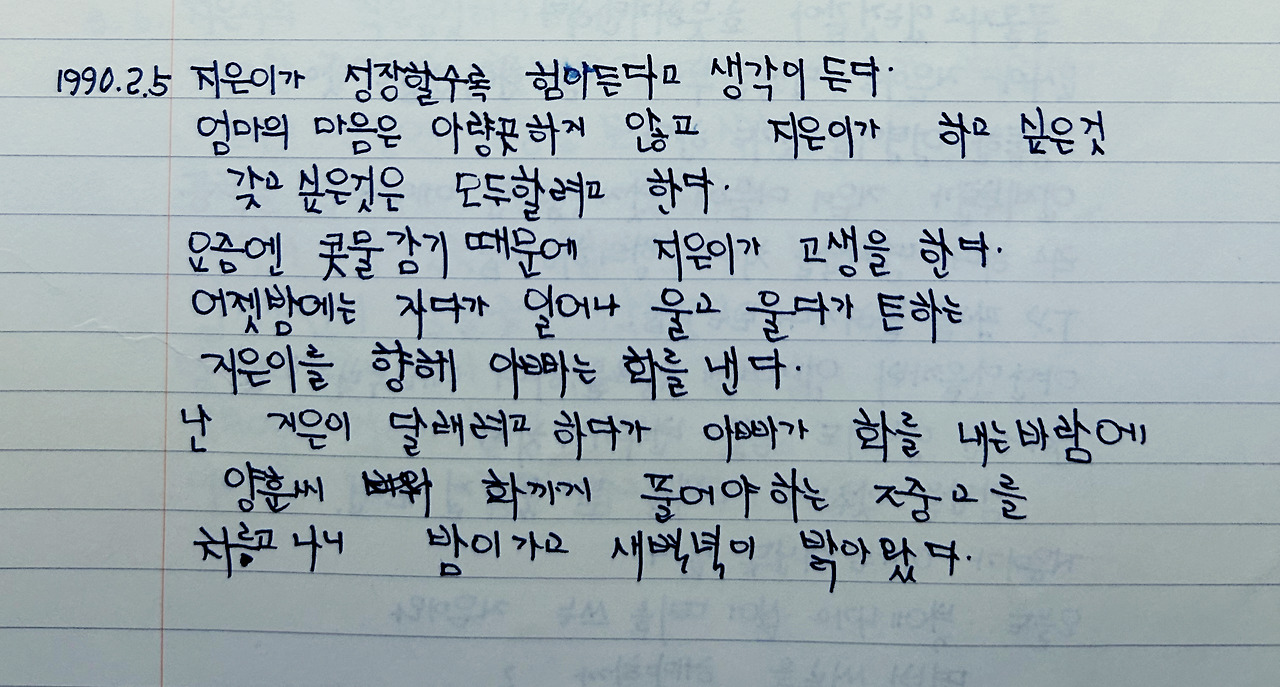 1990.2.5 지은이가 성장할수록 힘이든다고 생각이 든다.
엄마의 마음은 아랑곳하지 않고 지은이가 하고 싶은것
갖고 싶은것은 모두할려고 한다.
요즘엔 콧물감기 때문에 지은이가 고생을 한다.
어젯밤에는 자다가 일어나 울고 울다가 토하는
지은이를 향해 아빠는 화를 낸다.
난 지은이 달래려고 하다가 아빠가 화를 내는바람에
양훈씨 화까지 풀어야하는 2중고를
치르고 나니 밤이가고 새벽녘이 밝아왔다.